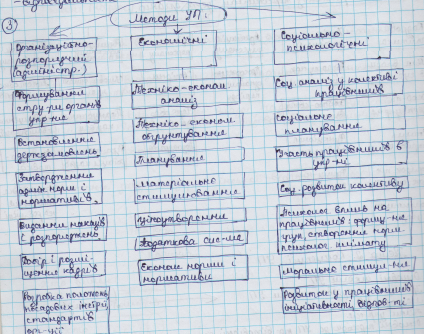 3
Методи УП:
Організаційно-
розпорядчі
(адміністр.)
Формування
стр-ри органів
упр-ня
Встановлення
держзамовлень
Затвердження
адмін норм і
нормативів
Видання наказів
і розпоряджень
Добір і розмі-
щення кадрів
Розробка положень,
посадових інстр.,
стандартів
орг-ції
Економічні
Техніко-економ.
аналіз
Техніко-економ.
обґрунтування
Планування
Матеріальне
стимулювання
Ціноутворення
Податкова сис-ма
Економ норми і
нормативи
Соціально-
психологічні
Соц. аналіз у колективі
працівників
Соціальне
планування
Участь працівників в
упр-ні
Соц. розвиток колективу
Психолог вплив на
працівників: форму-ня
груп, створення норм
психолог клімату
Моральне стимул-ня
Розвиток у працівників
ініціативи, відпов-ті